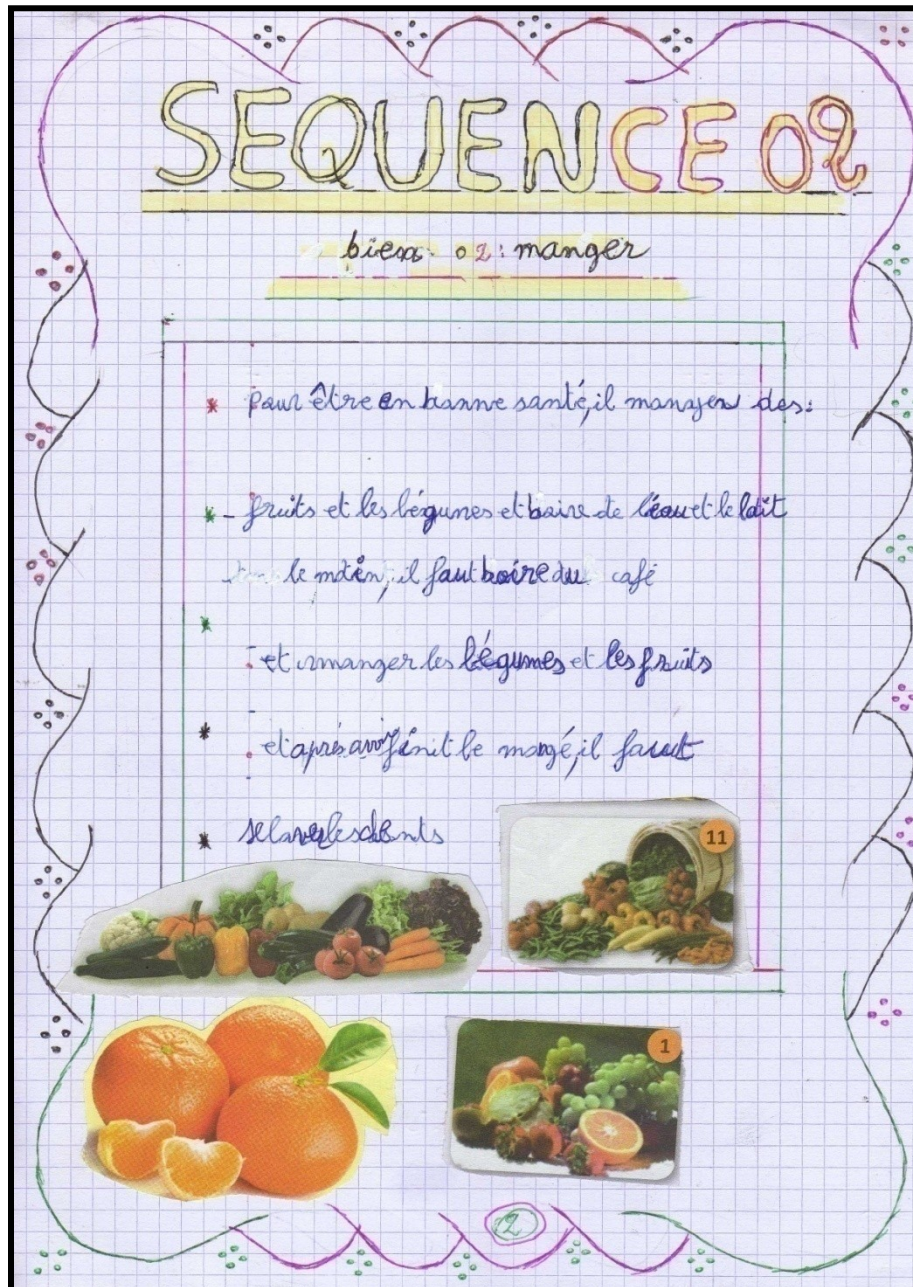 SEQUENCE 02
bien 02: manger
* Pour être en bonne santé, il manger des:
* - fruits et les légumes et boire de l'éau et le lait
le matin, il faut boire du café
* et manger les légumes et les fruits
* et après avoir finit le mangé, il faut
* se laver les dents
11
1
2